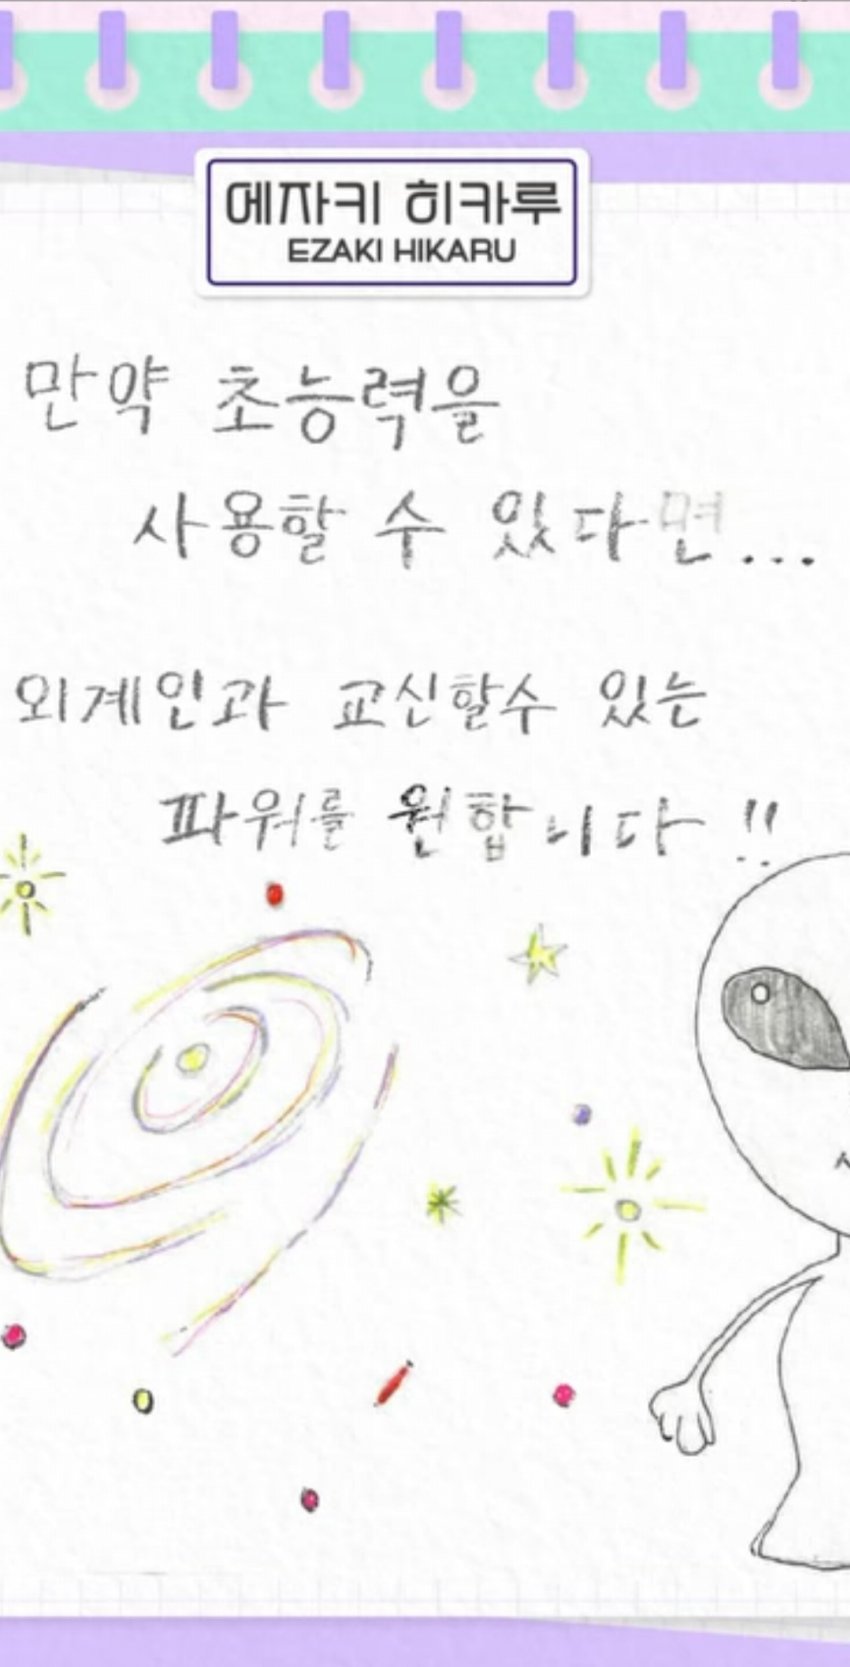 에자키 히카루
EZAKI HIKARU
만약 초능력을
사용할 수 있다면...
외계인과 교신할수 있는
파워를 원합니다!!